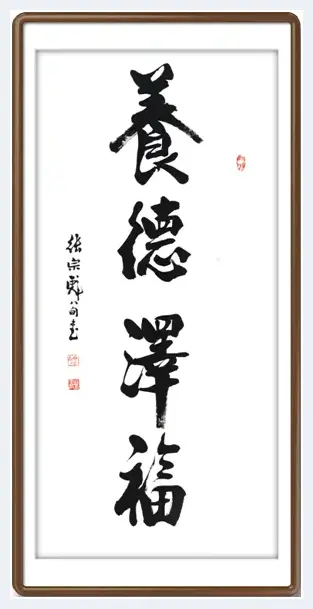 養德澤福
張宗彪